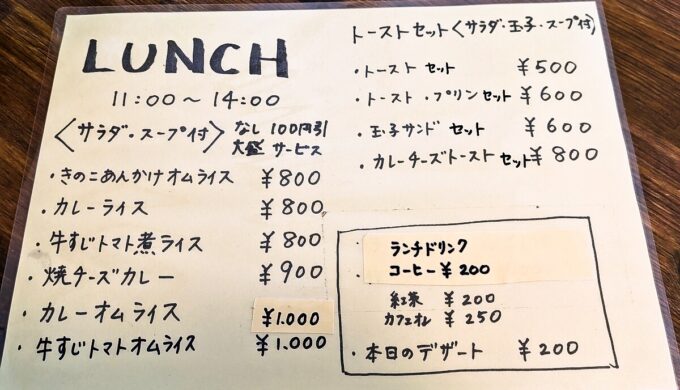 LUNCH
11:00〜14:00
〈サラダ・スープ付〉 なし 100円引
大盛 サービス
・きのこあんかけオムライス ¥800
・カレーライス ¥800
・牛すじトマト煮ライス ¥800
・焼チーズカレー ¥900
・カレーオムライス ¥1.000
・牛すじトマトオムライス ¥1.000
トーストセット〈サラダ・玉子・スープ付〉
・トースト セット ¥500
・トースト・プリンセット ¥600
・玉子サンド セット ¥600
・カレーチーズトースト セット ¥800
ランチドリンク
・コーヒー ¥200
紅茶 ¥200
カフェオレ ¥250
・本日のデザート ¥200